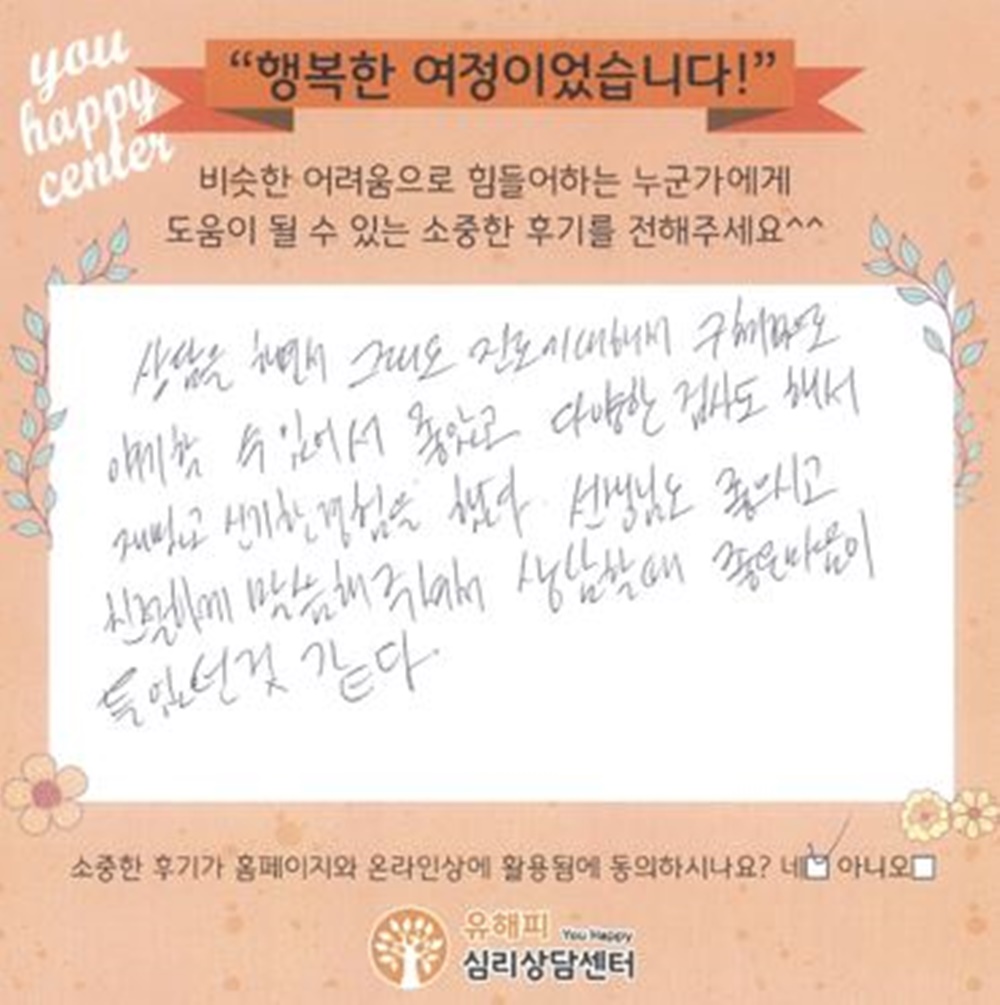 you
happy
center
“행복한 여정이었습니다!”
비슷한 어려움으로 힘들어하는 누군가에게
도움이 될 수 있는 소중한 후기를 전해주세요^^
상담을 하면서 그래도 진로에대해서
얘기할 수 있어서 좋았고 다양한 검사도 해서
재밌고 신기한경험을 했다. 선생님도 좋으시고
친절하게 말씀해주셔서 상담할때 좋은마음이
들었던것 같다.
소중한 후기가 홈페이지와 온라인상에 활용됨에 동의하시나요? 네 아니오
유해피 You Happy
심리상담센터